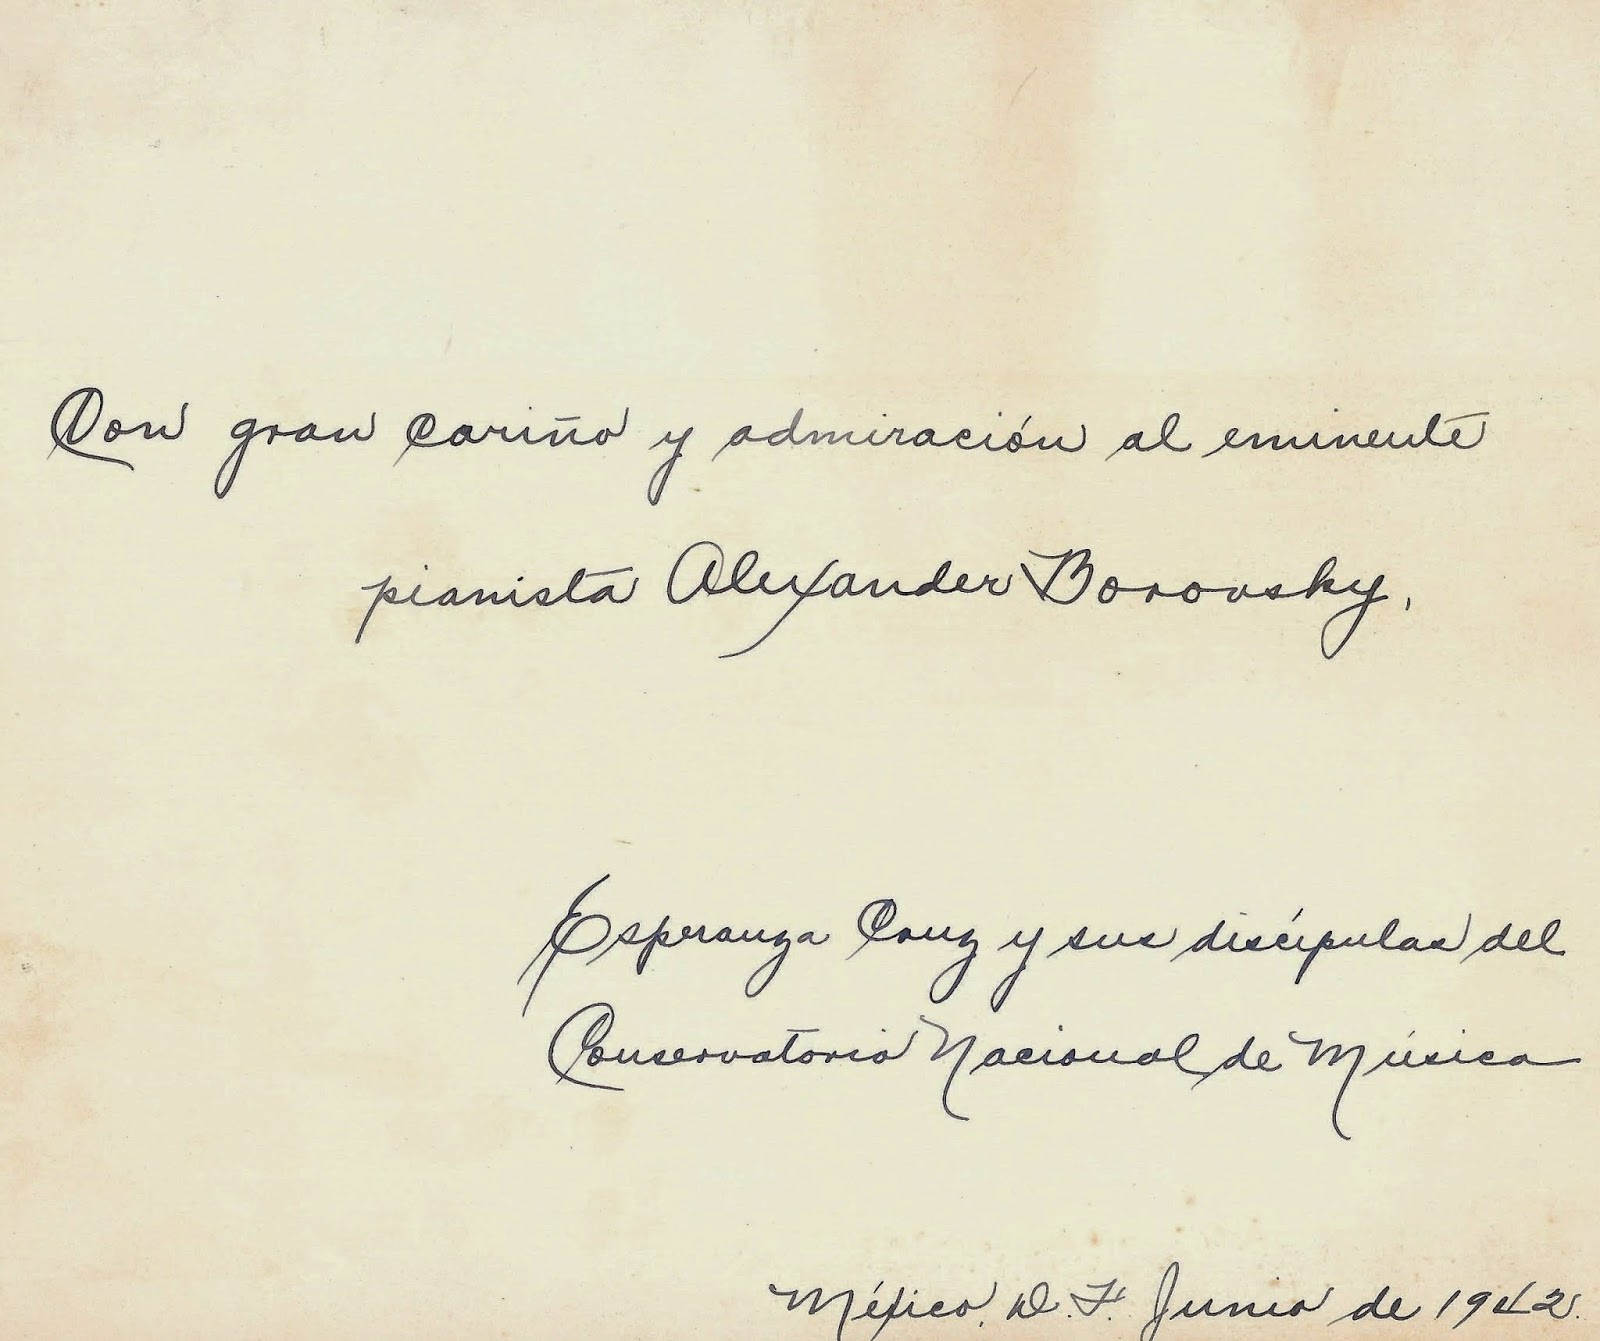 Con gran cariño y admiración al eminente
pianista Alexander Borovsky.
Esperanza Cruz y sus discípulas del
Conservatorio Nacional de Música
México. D. F. Junio de 1942.